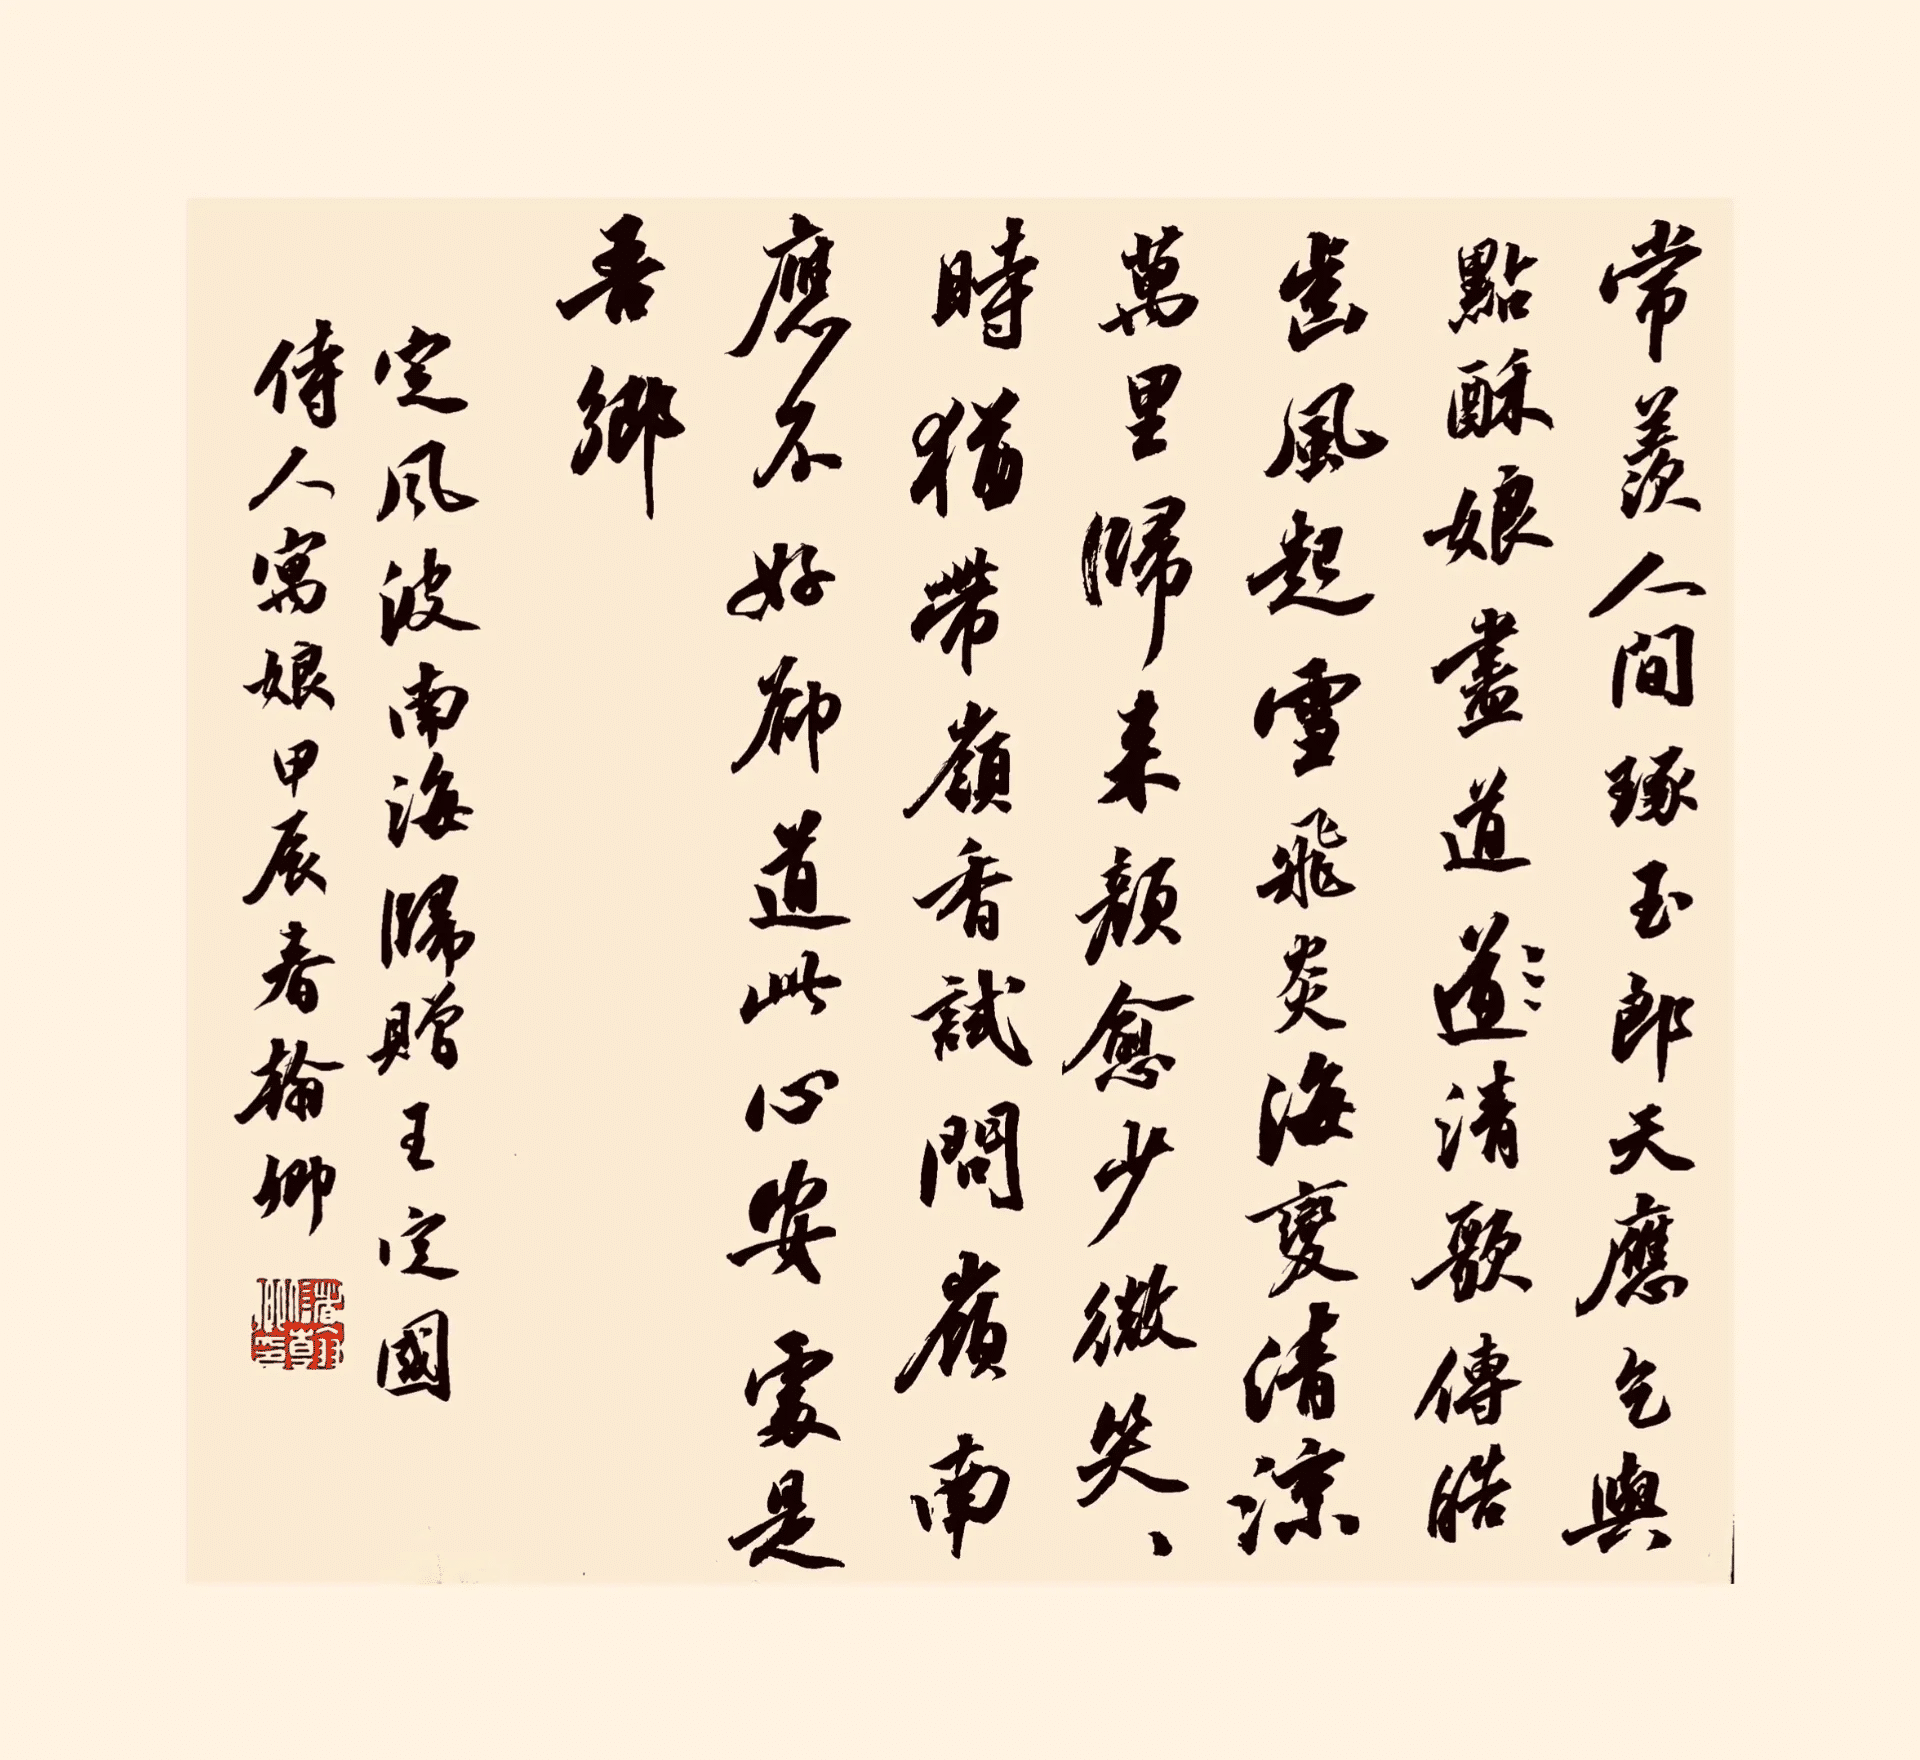 常羨人間琢玉郎天應乞與
點酥娘盡道道清歌傳皓
齒風起雪飛炎海變清涼
萬里歸来顏愈少微笑、
時猶帶嶺香試問嶺南
應不好卻道此心安處是
吾鄉
定风波南海歸贈王定國
侍人寓娘甲辰春翰卿